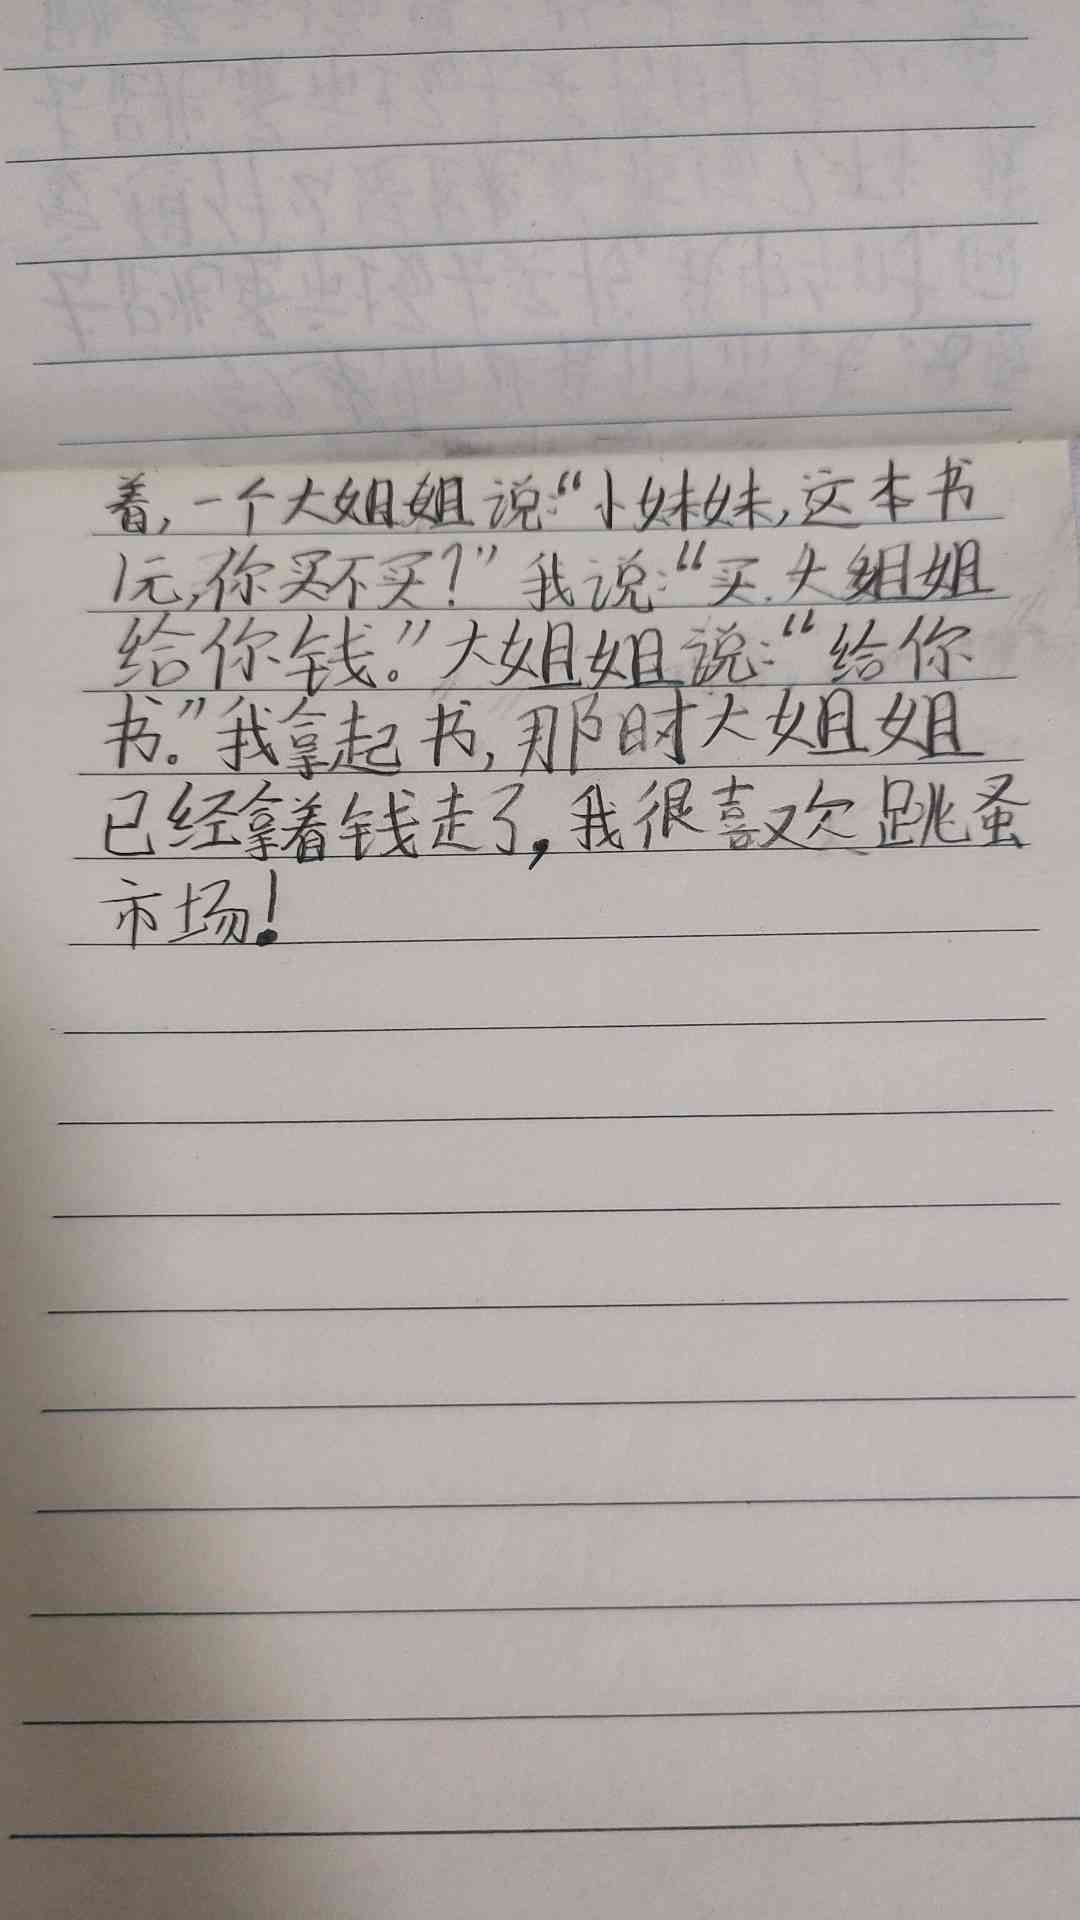 着,一个大姐姐说:“小妹妹,这本书
1元,你买不买?”我说:“买.大姐姐
给你钱。”大姐姐说:“给你
书。”我拿起书,那时大姐姐
已经拿着钱走了,我很喜欢跳蚤
市场!